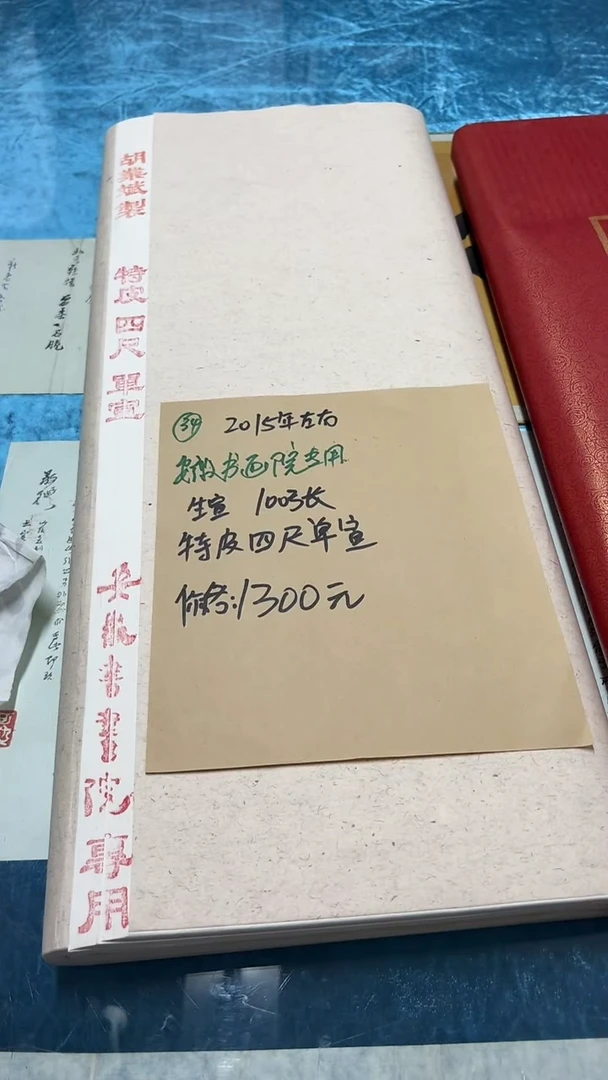 胡業斌製
特皮四尺單宣
安徽書畫院專用
34 2015年左右
安徽书画院专用
生宣 100张
特皮四尺单宣
价格:1300元